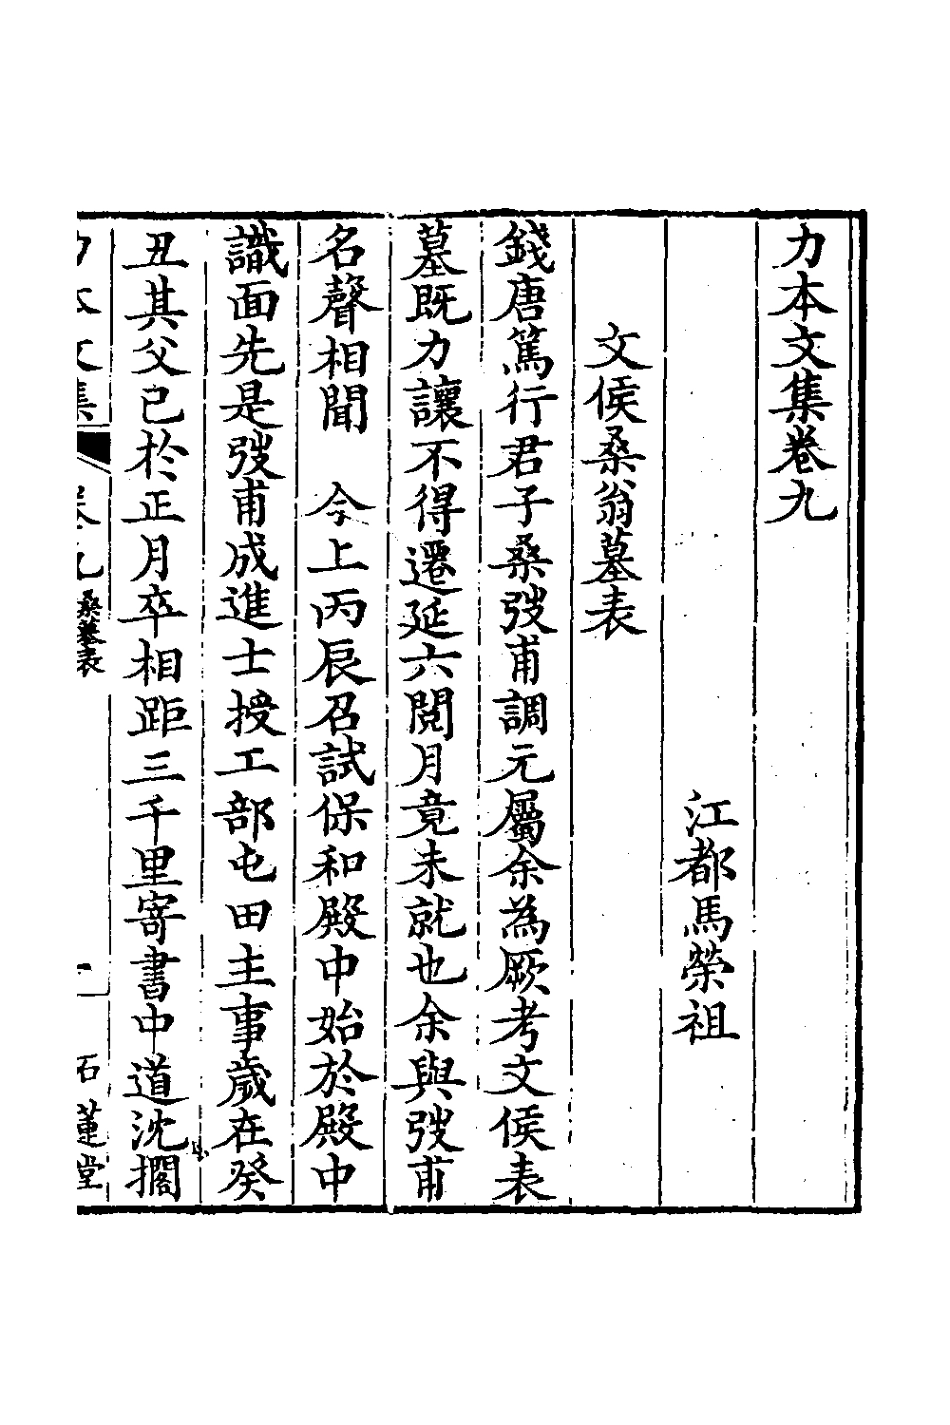 力本文集卷九
江都馬榮祖
文侯桑翁墓表
錢唐篤行君子桑弢甫調元屬余為厥考文侯表
墓既力讓不得遷延六閱月竟未就也余與弢甫
名聲相聞　今上丙辰召試保和殿中始於殿中
識面先是弢甫成進士授工部屯田主事歲在癸
丑其父已於正月卒相距三千里寄書中道沈擱
力本文集　卷九　桑墓表　一　石蓮堂